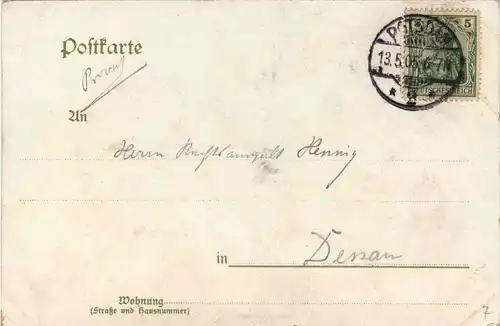 Postkarte
5
POTSDAM
13.5.05. 6-7N
* 2
DEUTSCHES REICH
An
Herrn Rechtsanwalt Hennig
in Dessau
Wohnung
(Straße und Hausnummer)
7